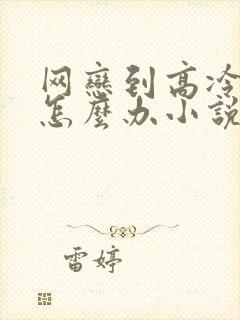 网戀到高冷
怎麼办小說
雷婷